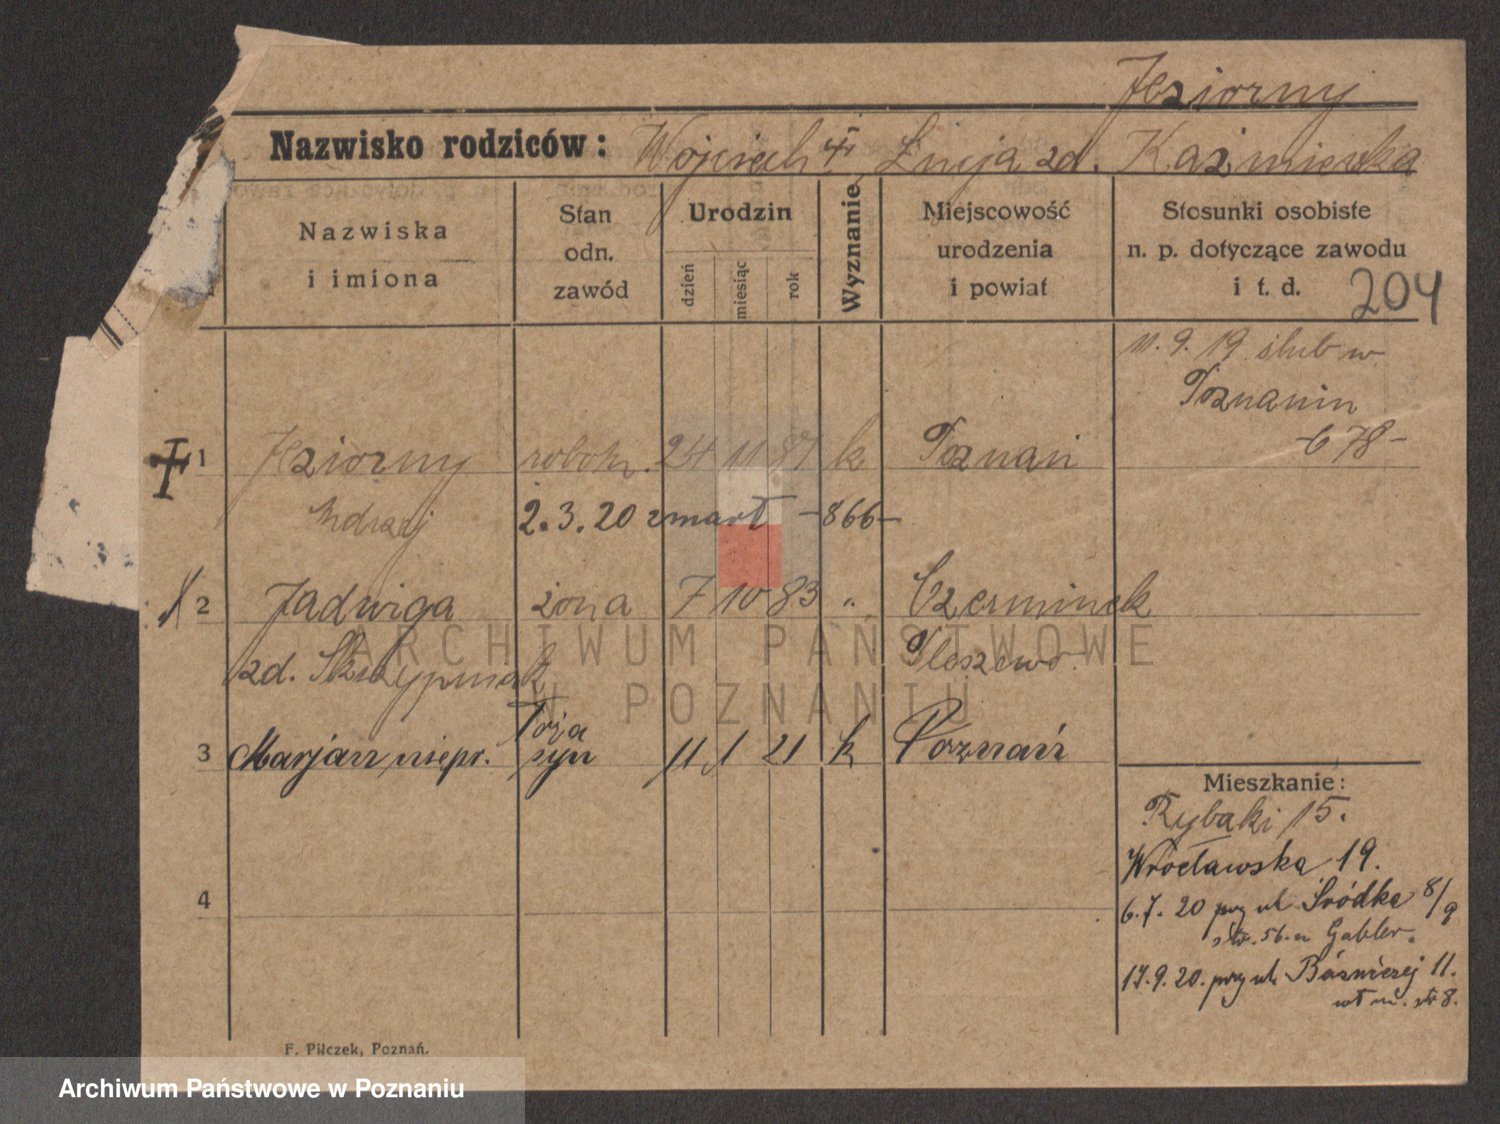 Jeziorny
Nazwisko rodziców: Wojciech Łucja zd. Kaźmierska
Nazwiska
i imiona
Stan
odn.
zawód
Urodzin
dzień
miesiąc
rok
Wyznanie
Miejscowość
urodzenia
i powiat
Stosunki osobiste
n. p. dotyczące zawodu
i t. d.
204
11. 9. 19 ślub w
Poznaniu
678-
1 Jeziorny robotn. 24 11 87 k Poznań
Andrzej 2.3.20 zmarł -866-
2 Jadwiga żona 7 10 83 " Czerminek
zd. Skrzypniak Pleszewo
3 Marjan niepr. Toża syn 11 1 21 k Poznań
4
Mieszkanie:
Rybaki 15.
Wrocławska 19.
6.7.20 przy ul Śródka 8/9
str. 56. u Gabler.
17.9.20. przy ul. 11.
str 8.
F. Pilczek, Poznań.
ARCHIWUM PAŃSTWOWE
W POZNANIU
Archiwum Państwowe w Poznaniu